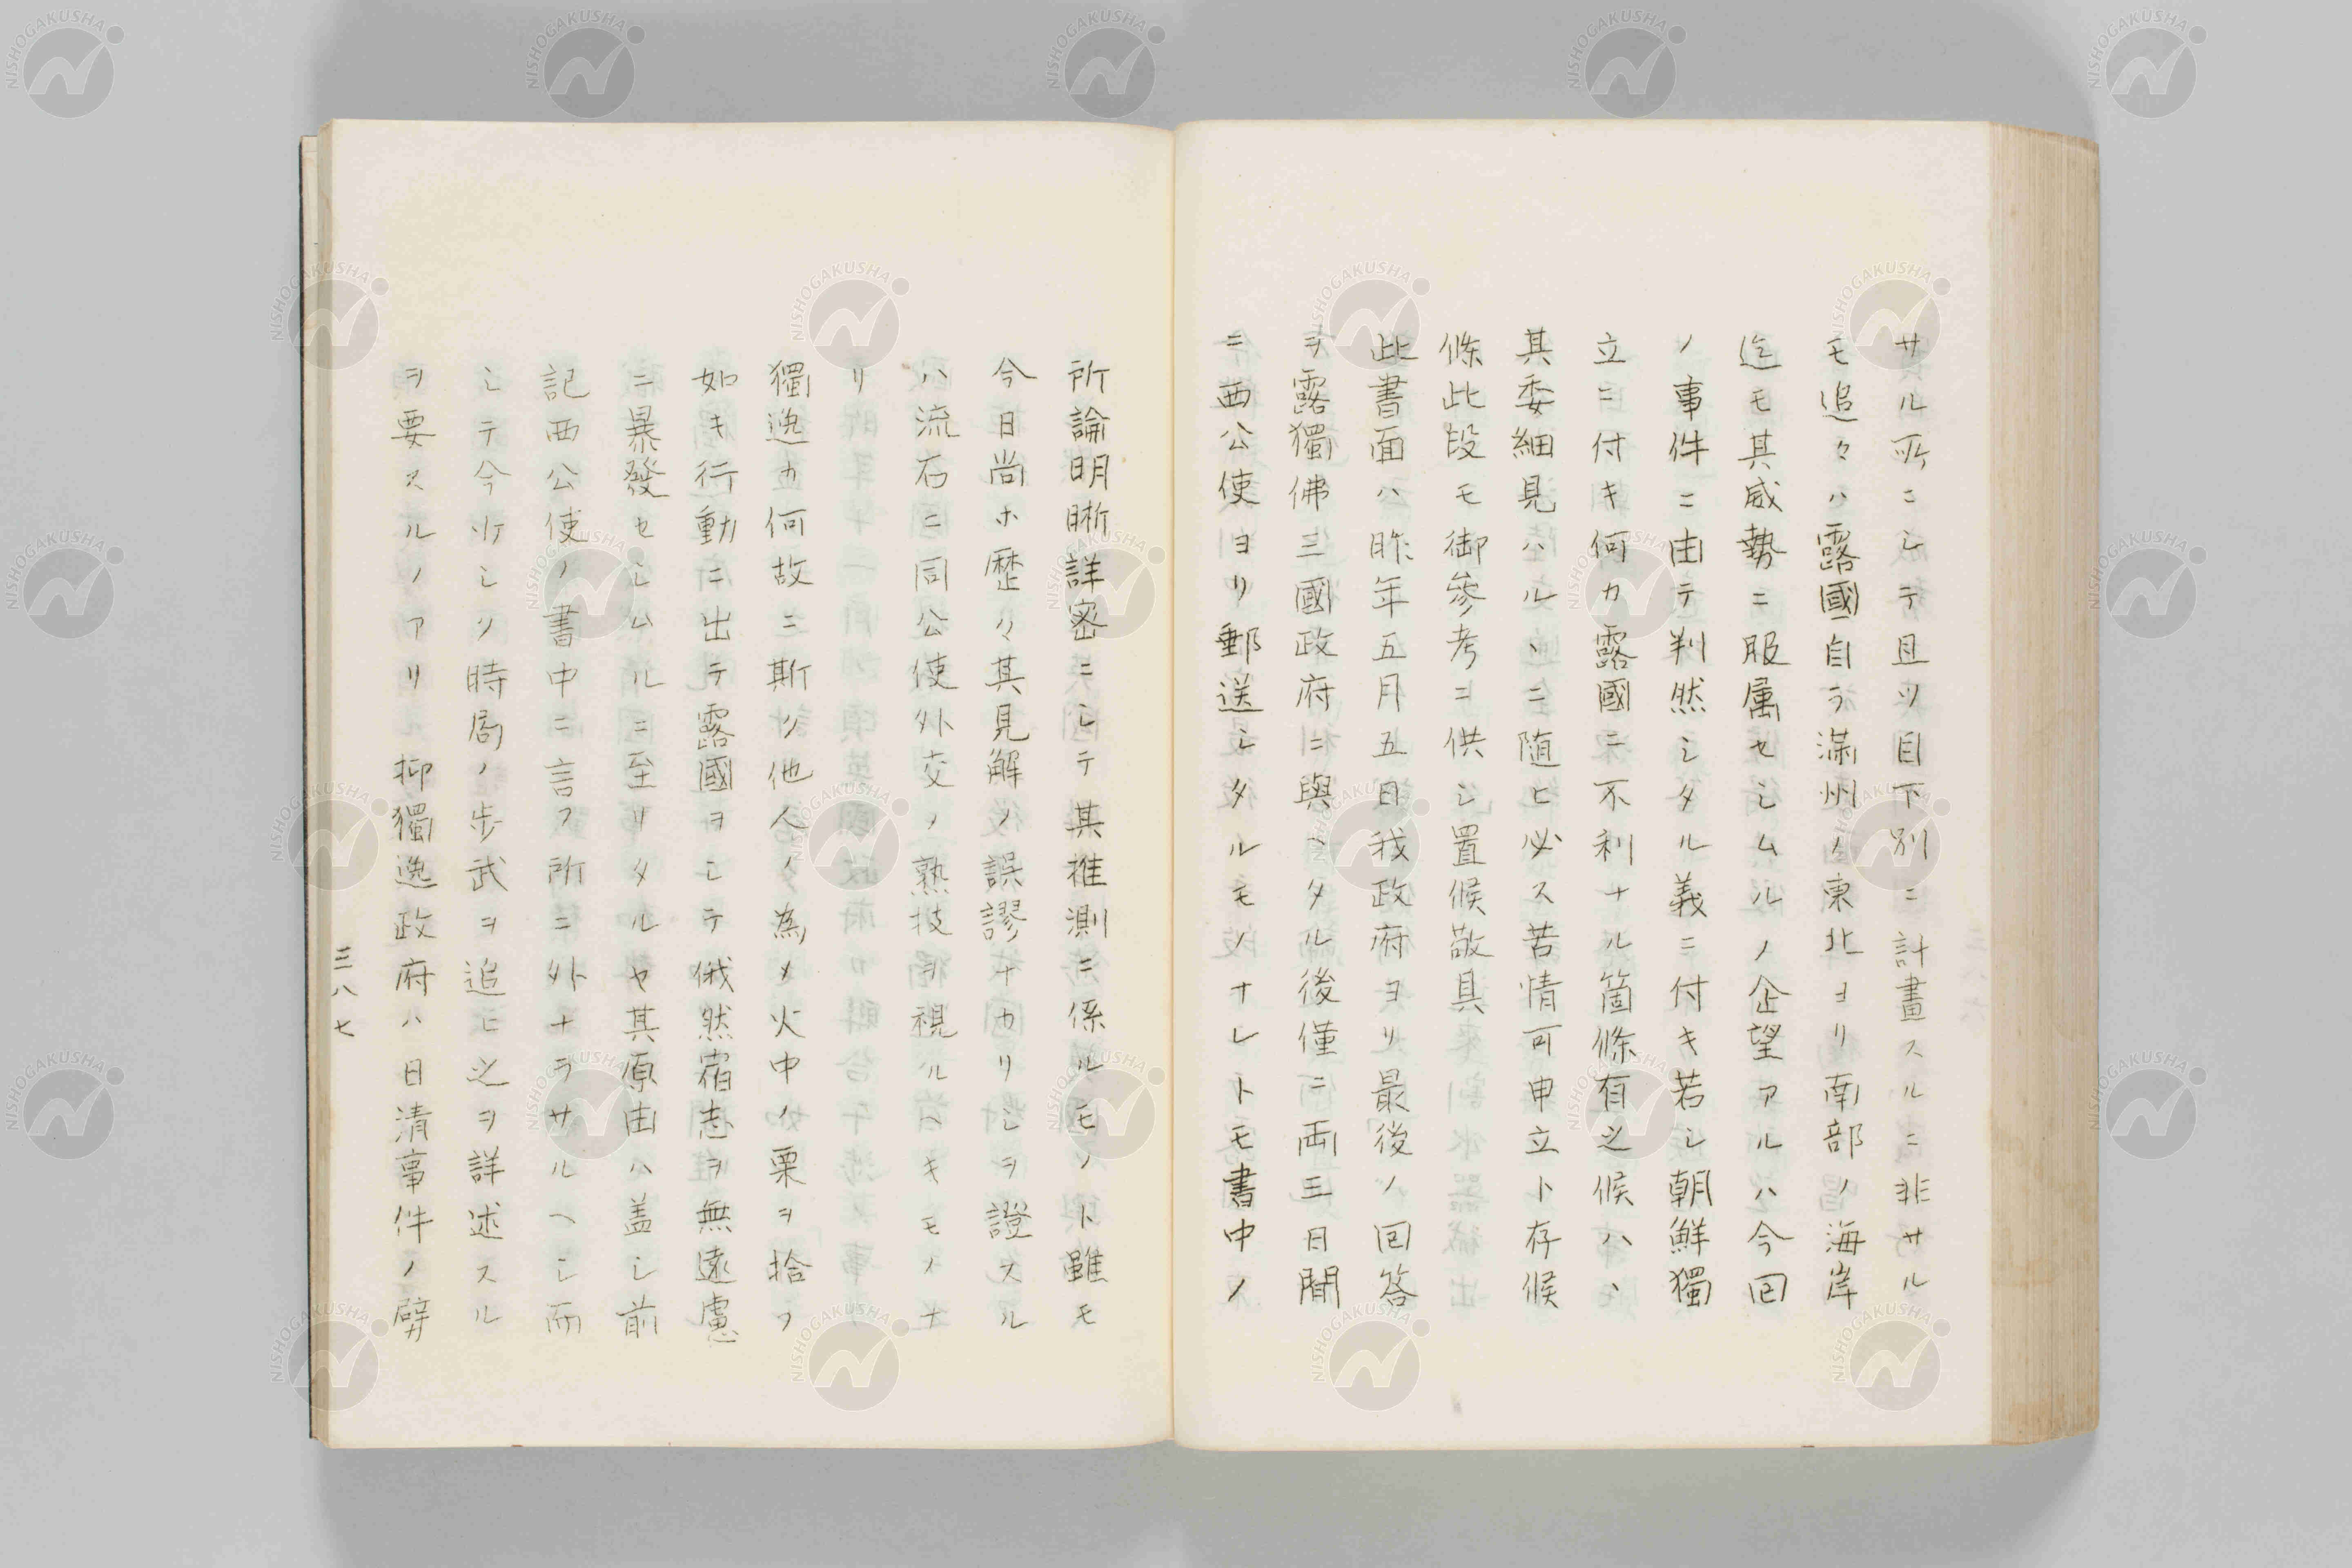 サル所ニシテ且ツ目下別ニ計畫スルニ非サル
モ追々ハ露國自ラ滿州ノ東北ヨリ南部ノ海岸
迄モ其威勢ニ服属セシムルノ企望アルハ今回
ノ事件ニ由テ判然シタル義ニ付キ若シ朝鮮獨
立ニ付キ何カ露國ニ不利ナル箇條有之候ハヽ
其委細見ハルヽニ随ヒ必ス苦情可申立ト存候
條此段モ御參考ニ供シ置候敬具
此書面ハ昨年五月五日我政府ヨリ最後ノ回答
ヲ露獨佛三國政府ニ與ヘタル後僅ニ両三日間
ニ西公使ヨリ郵送シタルモノナレトモ書中ノ
所論明晰詳密ニシテ其推測ニ係ルモノト雖モ
今日尚ホ歴々其見解ノ誤謬ナカリシヲ證スル
ハ流石ニ同公使外交ノ熟技ヲ視ルヘキモノナ
リ
獨逸カ何故ニ斯ク他人ノ為メ火中ノ栗ヲ拾フ
如キ行動ニ出テ露國ヲシテ俄然宿志ヲ無遠慮
ニ暴發セシムルニ至リタルヤ其原由ハ盖シ前
記西公使ノ書中ニ言フ所ニ外ナラサルヘシ而
シテ今少シク時局ノ歩武ヲ追ヒ之ヲ詳述スル
ヲ要スルノアリ抑獨逸政府ハ日清事件ノ劈
三八七
NISHOGAKUSHA